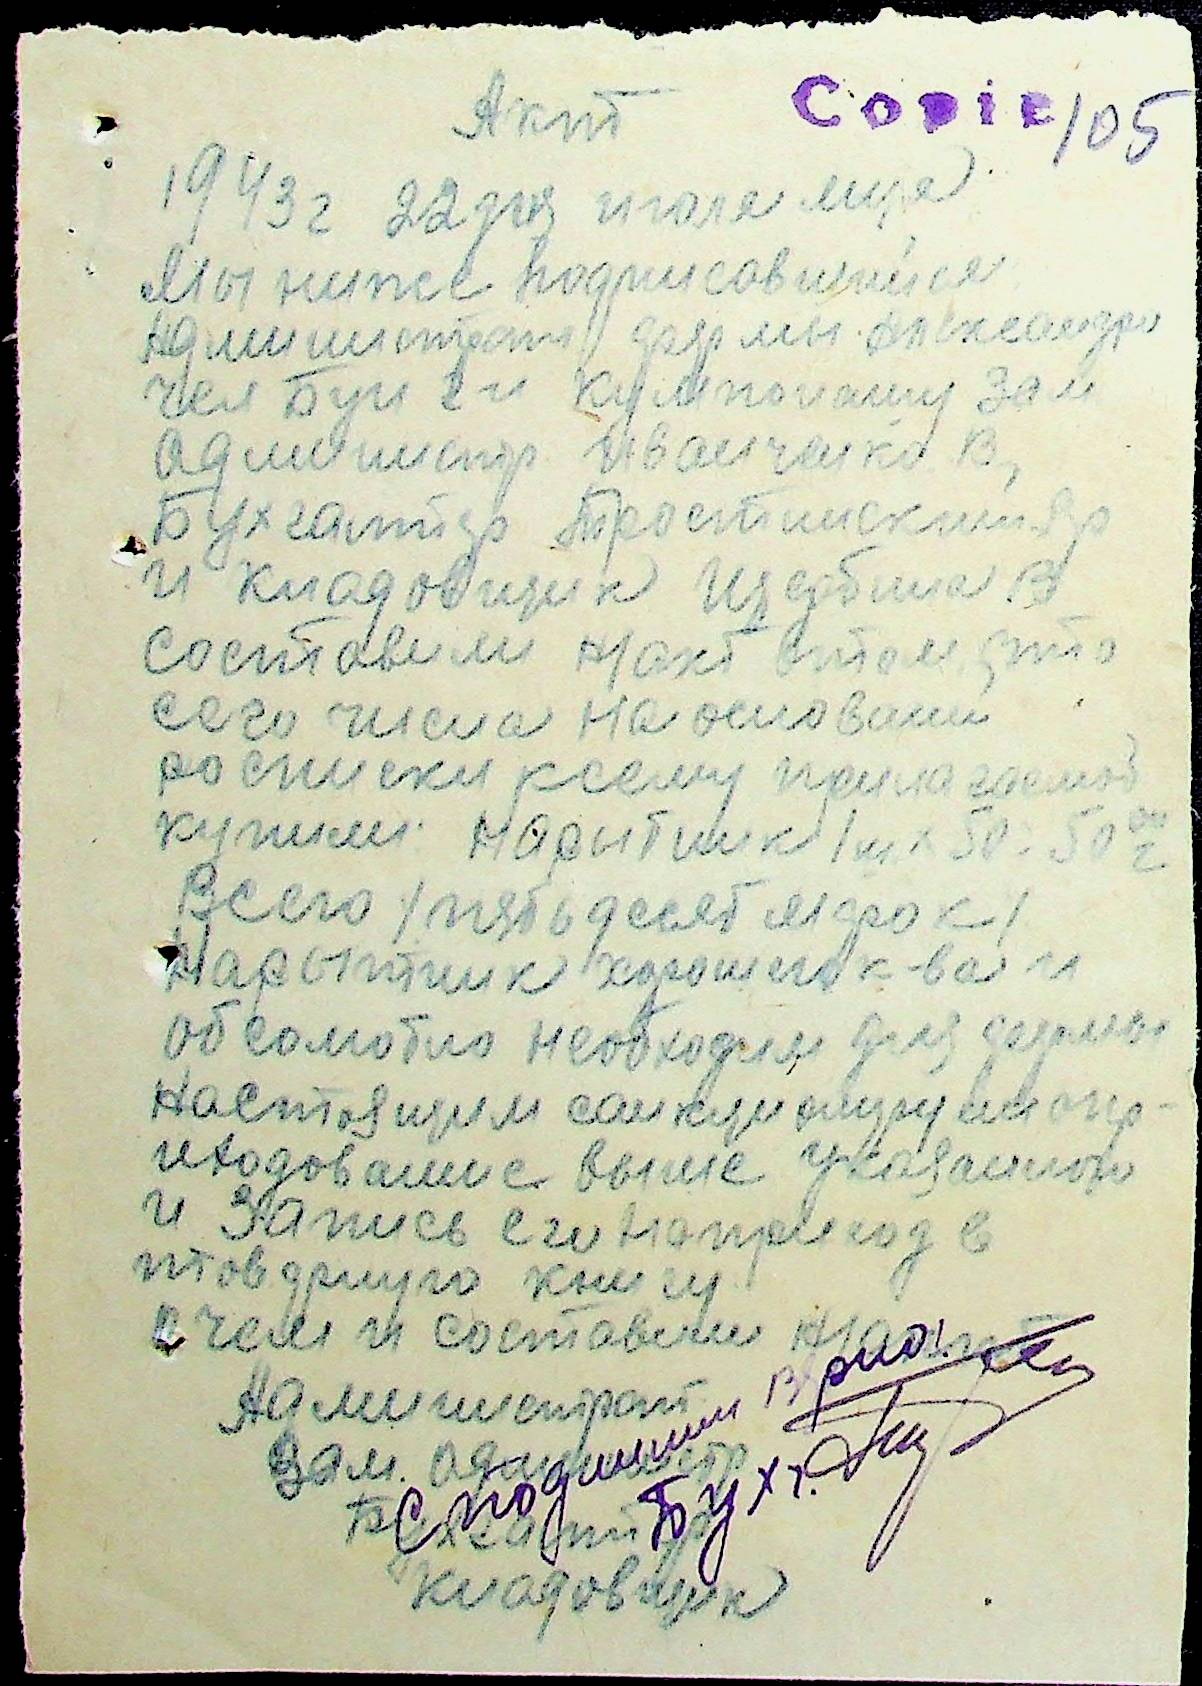 Акт
Copie 105
1943 г 22 дня июля м-ца
Мы ниже подписавшиеся
Администрат фермы Александри
чел Бун и Кумпонашу Зам
администр Иванченко В,
Бухгалтер Тростинский Яр
и кладовщик Щербина В
составили Накт стом что
сего числа на основани
росписки ксему прилагаемой
купили Нарытник 1 ш х 50 = 50 00
Всего /пятьдесят марок/
Нарытник хорошего к-ва и
обсомотно необходим для фермы
Настоящим санкционируем опр-
иходование выше указанного
и Запись его на приход в
товарную книгу
о чем и составили Накт
Администрат
Зам. администр
Бухгалтер
Кладовщик
С подлинным верно:
Бухг.